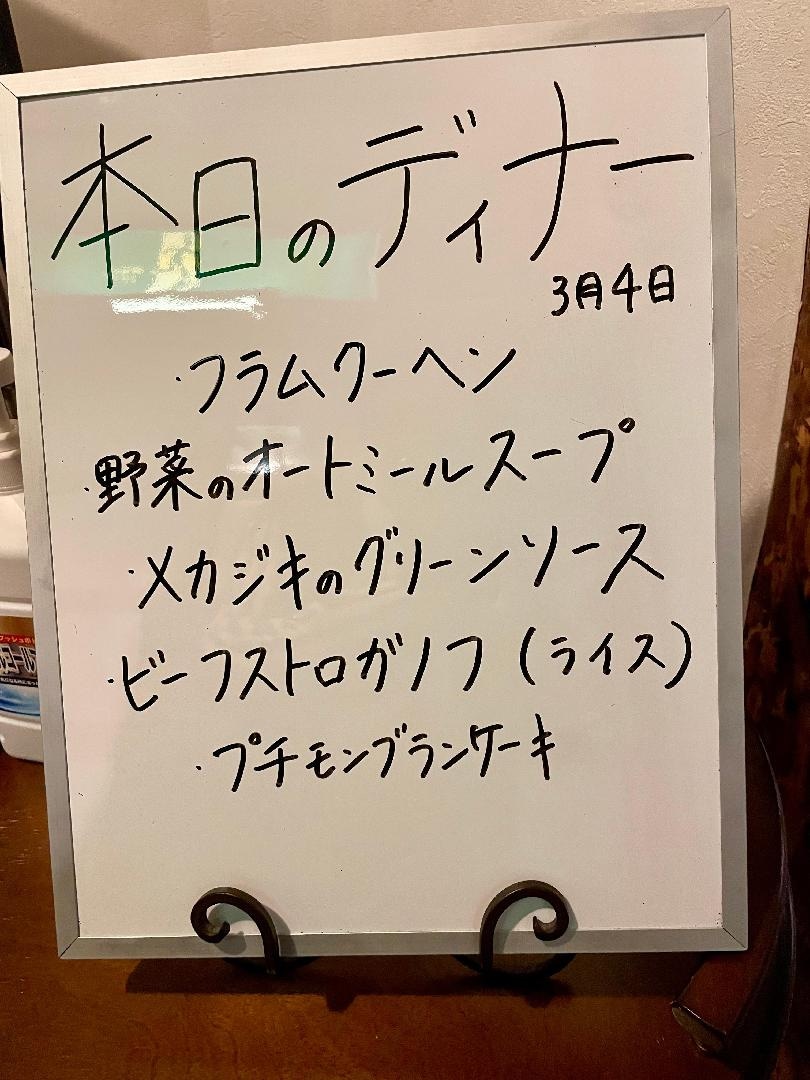 本日のディナー
3月4日
・フラムクーヘン
・野菜のオートミールスープ
・メカジキのグリーンソース
・ビーフストロガノフ(ライス)
・プチモンブランケーキ